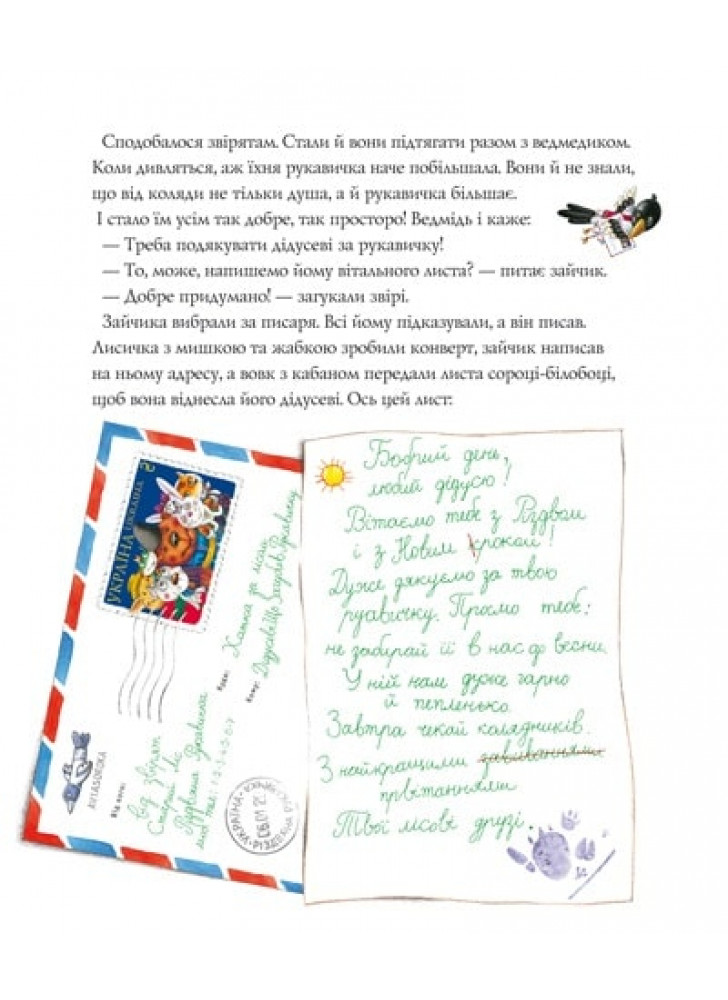 Сподобалося звірятам. Стали й вони підтягати разом з ведмедиком.
Коли дивляться, аж їхня рукавичка наче побільшала. Вони й не знали,
що від коляди не тільки душа, а й рукавичка більшає.
І стало їм усім так добре, так просторо! Ведмідь і каже:
— Треба подякувати дідусеві за рукавичку!
— То, може, напишемо йому вітального листа? — питає зайчик.
— Добре придумано! — загукали звірі.
Зайчика вибрали за писаря. Всі йому підказували, а він писав.
Лисичка з мишкою та жабкою зробили конверт, зайчик написав
на ньому адресу, а вовк з кабаном передали листа сороці-білобоці,
щоб вона віднесла його дідусеві. Ось цей лист:
УКРАЇНА UKRAINA
2
Куди: Хатка за лісом
Кому:
AVIASOROKA
Від кого:
від звірят
Старий Ліс
Різдвяна Рукавичка
1-2-3-4-5-6-7
УКРАЇНА
Бобрий день,
любий дідусю!
Вітаємо тебе з Різдвом
і з Новим кроком!
Дуже дякуємо за твою
руавичку. Просмо тебе:
не забирай її в нас до весни.
У ній нам дуже гарно
й пепленько.
Завтра чекай колядників.
З найкращими завиваннями
превітаннями
Твої лісові друзі.